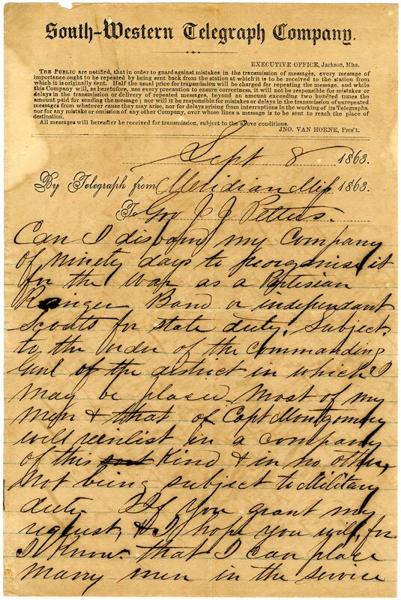 South-Western Telegraph Company.
EXECUTIVE OFFICE, Jackson, Miss.
THE PUBLIC are notified, that in order to guard against mistakes in the transmission of messages, every message of
importance ought to be repeated by being sent back from the station at which it is to be received to the station from
which it is originally sent. Half the usual price for transmission will be charged for repeating the message, and while
this Company will, as heretofore, use every precaution to ensure correctness, it will not be responsible for mistakes or
delays in the transmission or delivery of repeated messages, beyond an amount exceeding two hundred times the
amount paid for sending the message; nor will it be responsible for mistakes or delays in the transmission of unrepeated
messages from whatever cause they may arise, nor for delays arising from interruptions in the working of its Telegraphs,
nor for any mistake or omission of any other Company, over whose lines a message is to be sent to reach the place of
destination.
All messages will hereafter be received for transmission, subject to the above conditions.
JNO. VAN HORNE, Pres't.
Sept 8 1863.
By Telegraph from Meridian Miss 1863.
To Gov J J Pettus.
Can I disband my Company
of ninety days to reorganise it
for the war as a Partisian
Ranger Band or independant
Scouts for state duty, Subject
to the order of the Commanding
Genl of the district in which I
may be placed Most of my
men & that of Capt Montgomery
will reenlist in a company
of this kind & in no other
not being subject to Military
duty. If you grant my
request & I hope you will, for
I know that I can place
many men in the service